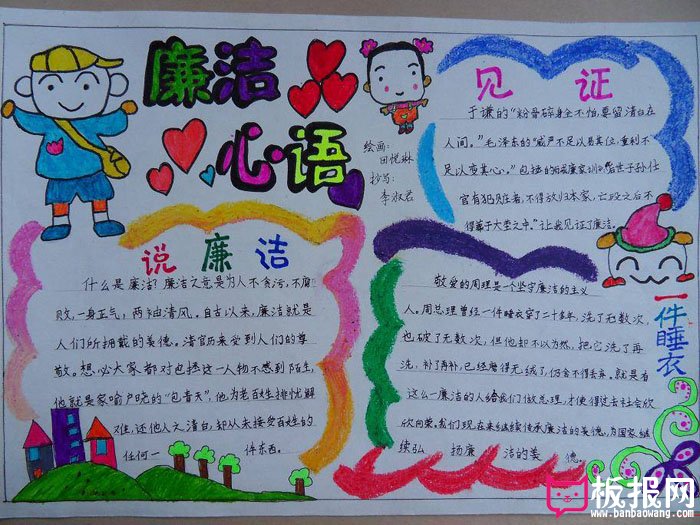 廉洁
心语
绘画:
田悦琳
抄写:
李淑君
见证
于谦的“粉骨碎身全不怕,要留清白在
人间。”毛泽东的“威严不足以易其位,重利不
足以变其心。”包拯的《诫廉家训》“后世子孙仕
官有犯贝赃者,不得放归本家,亡殁之后不
得葬于大茔之中。”让我见证了廉洁。
说廉洁
什么是廉洁?廉洁之意是为人不贪污,不腐
败,一身正气,两袖清风。自古以来,廉洁就是
人们所拥戴的美德。清官历来受到人们的尊
敬。想必大家都对包拯这一人物不感到陌生,
他就是家喻户晓的“包青天”,他为老百姓排忧解
难,还他人之清白,却从未接受百姓的
任何一件东西。
一件睡衣
敬爱的周理是一个坚守廉洁的主义
人。周总理曾经一件睡衣穿了二十多年,洗了无数次,
也破了无数次,但他却不以为然,把它洗了再
洗,补了再补,已经磨得无绒了,仍舍不得丢弃。就是有
这么一廉洁的人给我们做总理,才使得过去社会欣
欣向荣。我们现在来继续传承廉洁的美德,为国家继
续弘扬廉洁的美德。
板报网
www.banbaowang.com